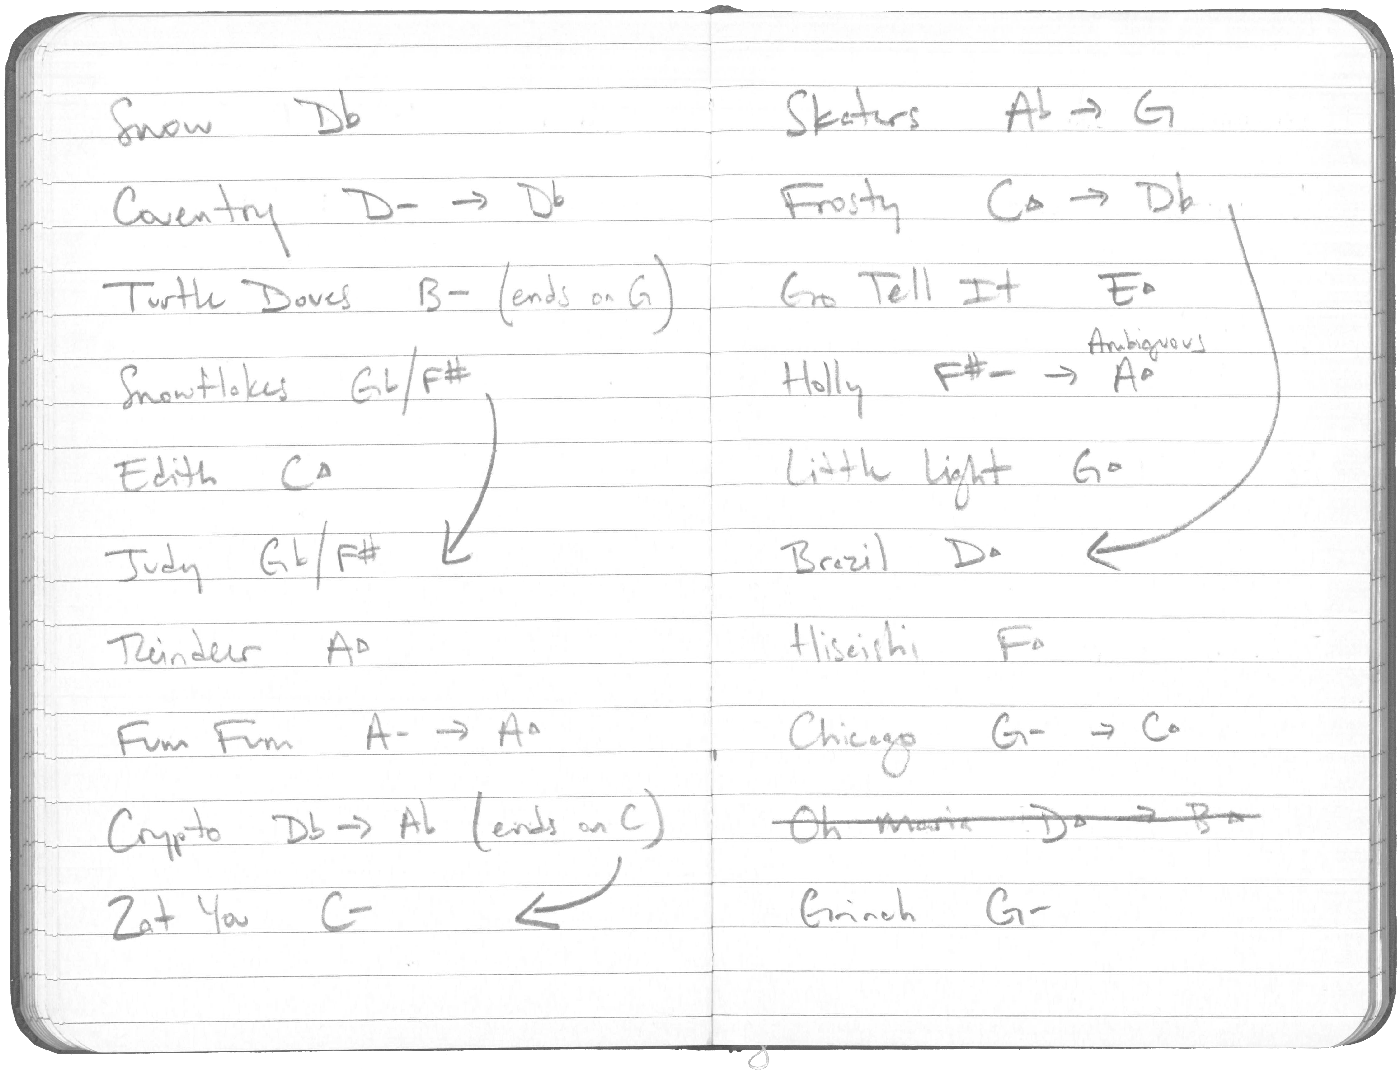 Snow Db
Coventry D- → Db
Turtle Doves B- (ends on G)
Snowflakes Gb/F#
Edith C△
Judy Gb/F#
Reindeer A△
Fum Fum A- → A△
Crypto Db → Ab (ends on C)
Zat You C-
Skaters Ab → G
Frosty C△ → Db
Go Tell It E△
Ambiguous
Holly F#- → A△
Little Light G△
Brazil D△
Hisaishi F△
Chicago G- → C△
Oh Maria D△ → B△
Grinch G-